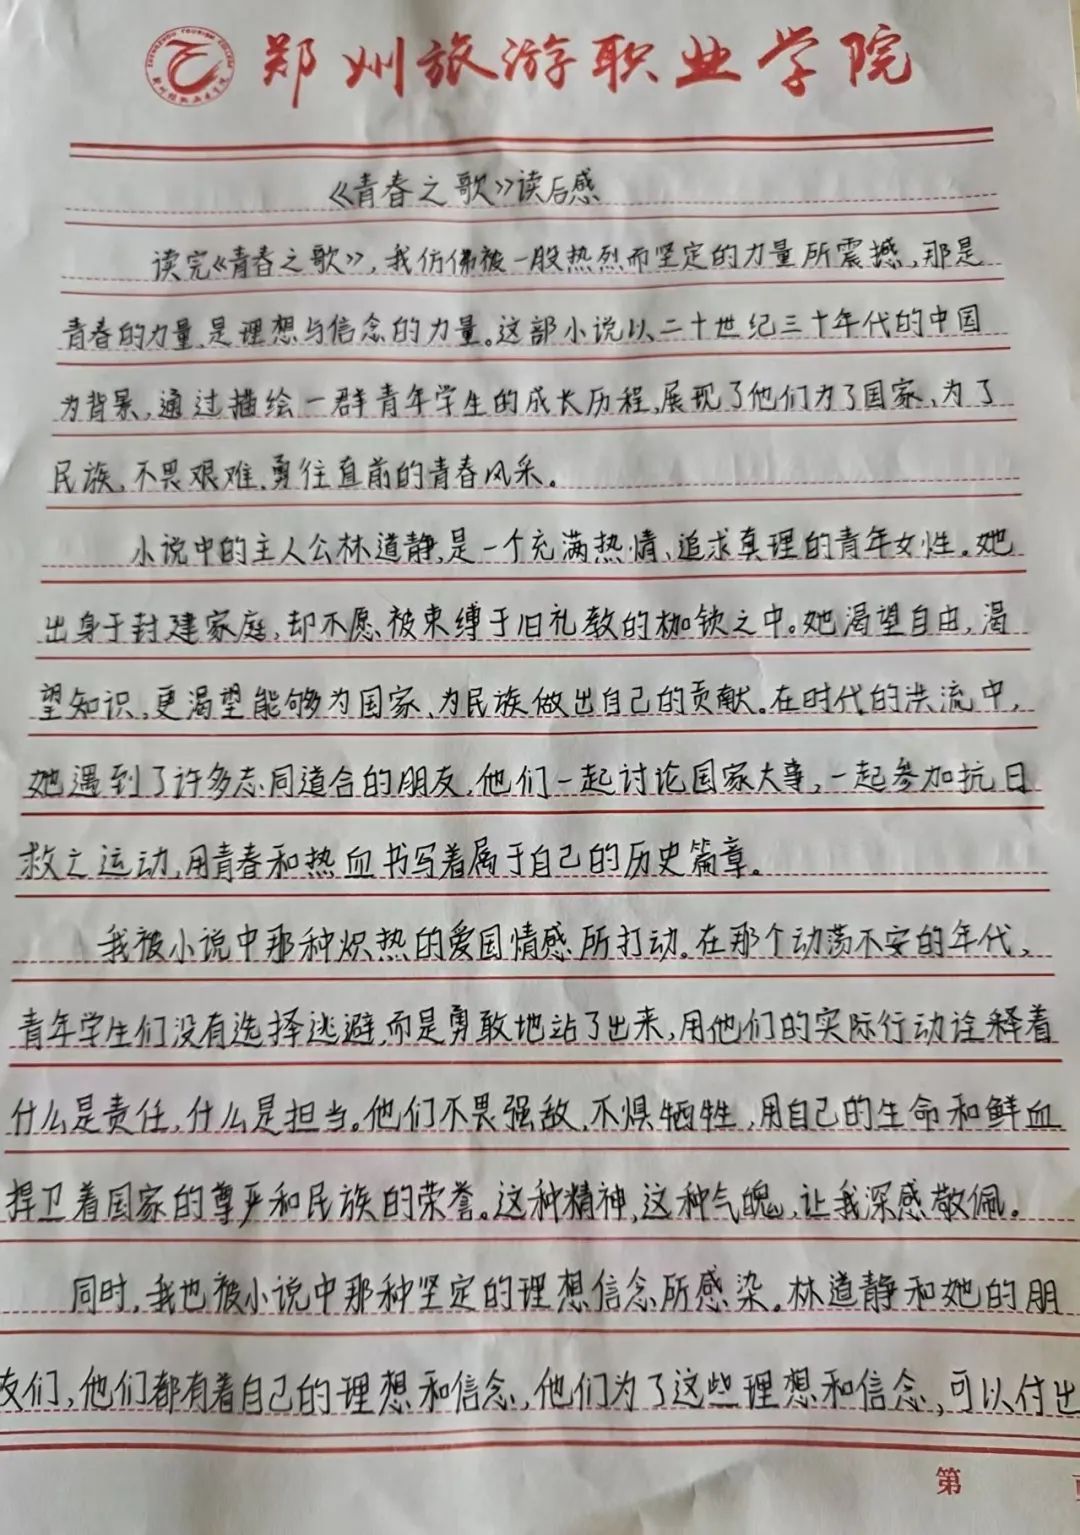 郑州旅游职业学院
《青春之歌》读后感
读完《青春之歌》，我仿佛被一股热烈而坚定的力量所震撼，那是
青春的力量，是理想与信念的力量。这部小说以二十世纪三十年代的中国
为背景，通过描绘一群青年学生的成长历程，展现了他们为了国家、为了
民族，不畏艰难，勇往直前的青春风采。
小说中的主人公林道静，是一个充满热情、追求真理的青年女性。她
出身于封建家庭，却不愿被束缚于旧礼教的枷锁之中。她渴望自由，渴
望知识，更渴望能够为国家、为民族做出自己的贡献。在时代的洪流中，
她遇到了许多志同道合的朋友，他们一起讨论国家大事，一起参加抗日
救亡运动，用青春和热血书写着属于自己的历史篇章。
我被小说中那种炽热的爱国情感所打动。在那个动荡不安的年代，
青年学生们没有选择逃避，而是勇敢地站了出来，用他们的实际行动诠释着
什么是责任，什么是担当。他们不畏强敌，不惧牺牲，用自己的生命和鲜血
捍卫着国家的尊严和民族的荣誉。这种精神，这种气魄，让我深感敬佩。
同时，我也被小说中那种坚定的理想信念所感染。林道静和她的朋
友们，他们都有着自己的理想和信念，他们为了这些理想和信念，可以付出
第